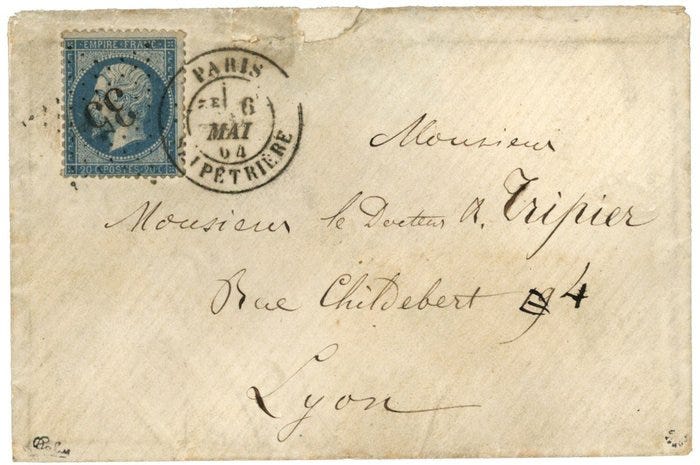 EMPIRE FRANC
35
20 C POSTES 20 C
PARIS
6
MAI
64
PÉTRIÈRE
Monsieur
Monsieur le Docteur A. Tripier
Rue Childebert 4
Lyon